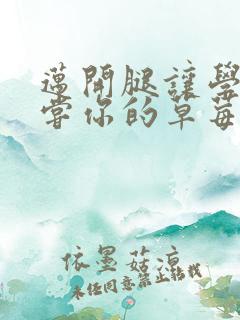 薖開腿讓學
嘗你的草莓
依墨菇涼
未经同意禁止转载